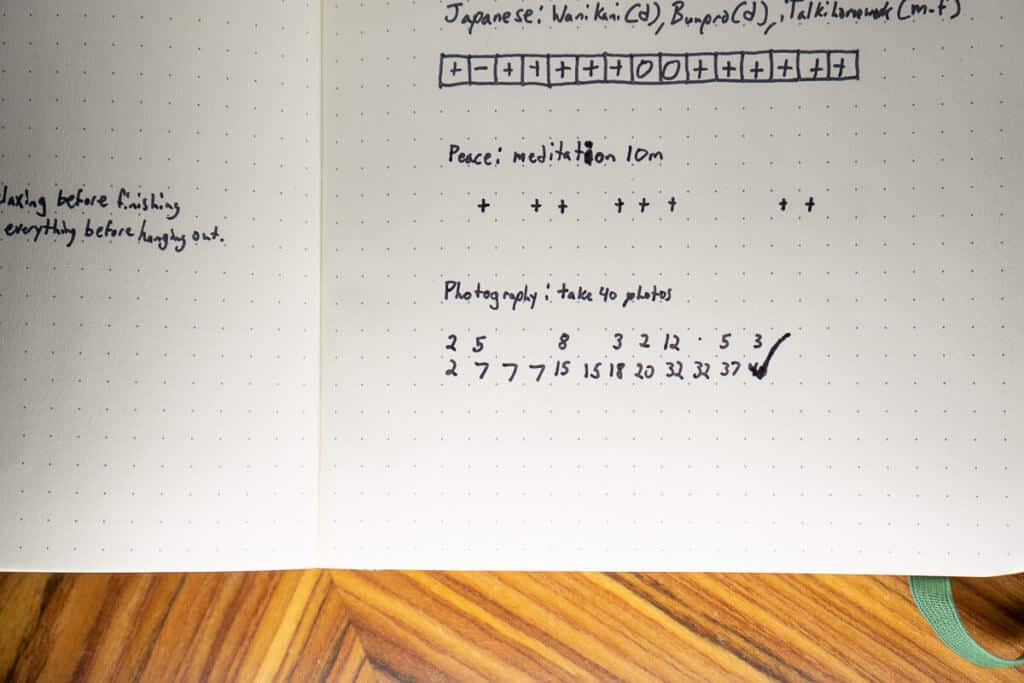 laxing before finishing
everything before hanging out.
Japanese: WaniKani (d), Bunpro (d), iTalki homework (m-f)
+ - + + + + + 0 0 + + + + + +
Peace: meditation 10m
+ + + + + + + +
Photography: take 40 photos
2 5 8 3 2 12 · 5 3 ✓
2 7 7 7 15 15 18 20 32 32 37